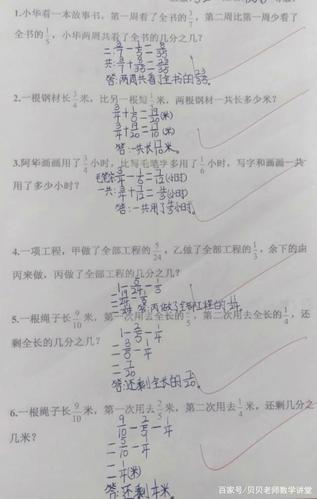 1.小华看一本故事书，第一周看了全书的3/7，第二周比第一周少看了
全书的1/5，小华两周共看了全书的几分之几？
二:3/7-1/5=8/35
共:3/7+8/35=23/35
答:两周共看了全书的23/35.
2.一根钢材长3/4米，比另一根短1/5米，两根钢材一共长多少米？
3/4+1/5=19/20(米)
3/4+19/20=17/10(米)
答:一共长
3.阿华画画用了3/4小时，比写毛笔字多用了1/6小时，写字和画画一共
用了多少小时？
毛笔字:3/4-1/6=7/12(小时)
一共:3/4+7/12=4/3(小时)
答:一共用了4/3小时.
4.一项工程，甲做了全部工程的5/24，乙做了全部工程的1/3，余下的由
丙来做，丙做了全部工程的几分之几？
1-5/24-1/3
答:丙做了全部工程的11/24.
5.一根绳子长9/10米，第一次用去全长的2/5，第二次用去全长的1/4，还
剩全长的几分之几？
1-2/5-1/4
=3/5-1/4
=7/20
答:还剩全长的7/20.
6.一根绳子长9/10米，第一次用去2/5米，第二次用去1/4米，还剩几分之
几米？
9/10-2/5-1/4
=5/10-1/4
=1/4(米)
答:还剩1/4米.
百家号/贝贝老师数学讲堂